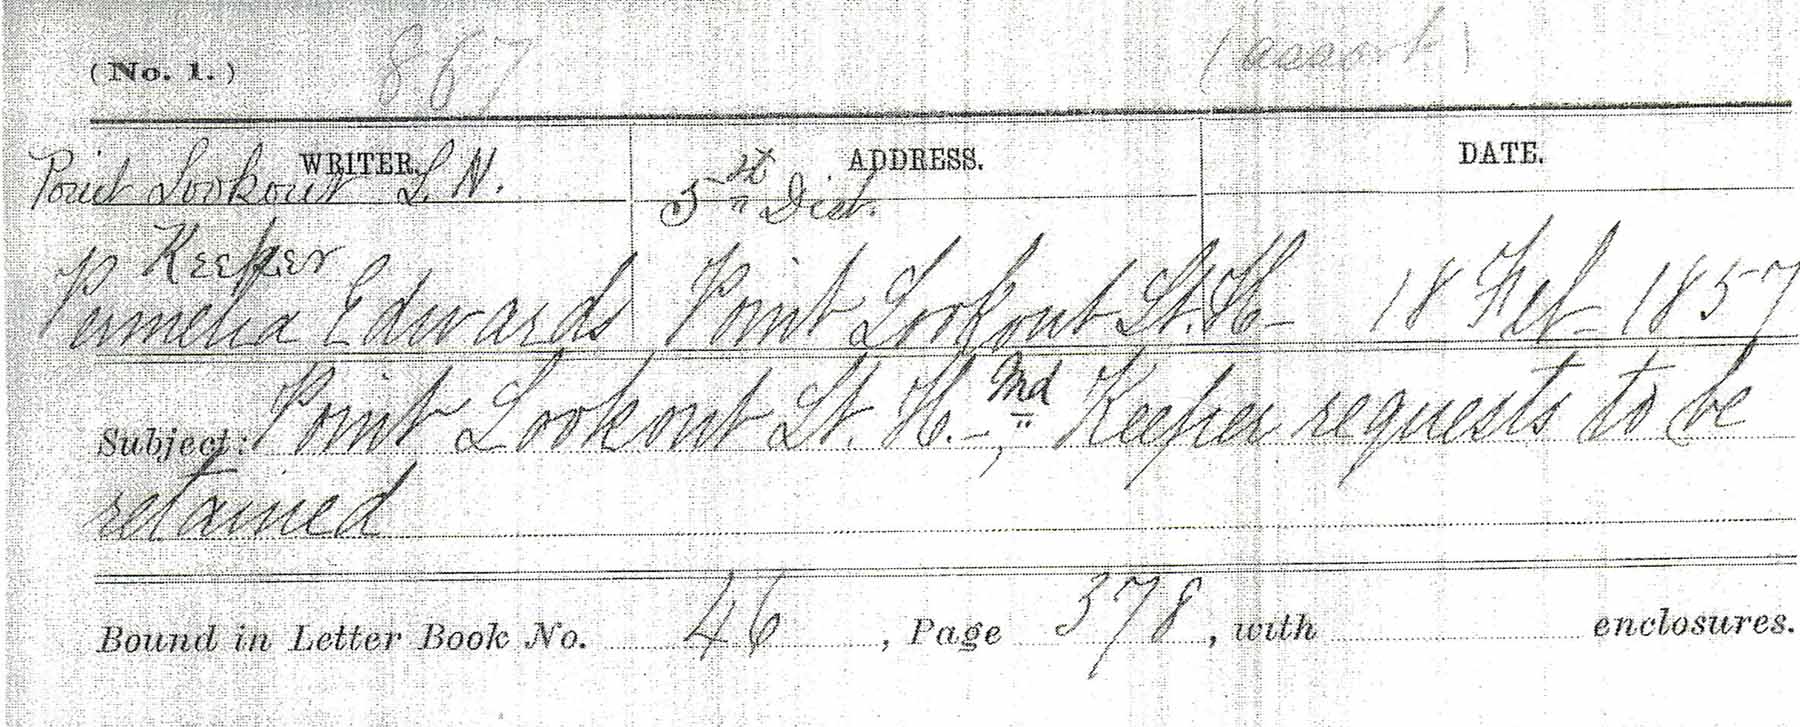 (No. 1.) 867
WRITER. ADDRESS. DATE.
Point Lookout L. H. 5th Dist.
Keeper
Permelia Edwards Point Lookout Lt. H- 18 Feb- 1857
Subject: Point Lookout Lt. H.-, Md Keeper requests to be
retained
Bound in Letter Book No. 46, Page 378, with enclosures.